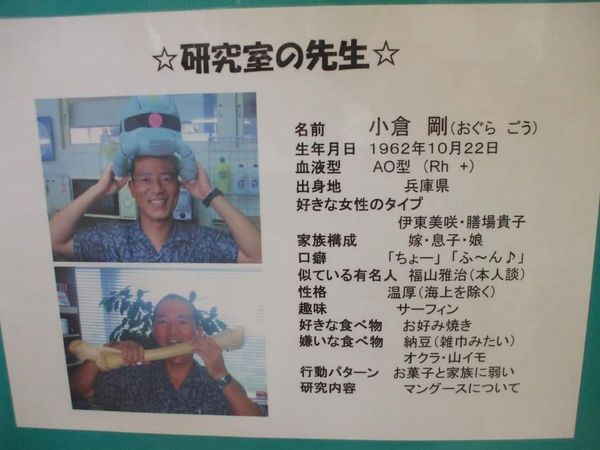 ☆研究室の先生☆
名前 小倉 剛(おぐら ごう)
生年月日 1962年10月22日
血液型 AO型 (Rh +)
出身地 兵庫県
好きな女性のタイプ
伊東美咲・膳場貴子
家族構成 嫁・息子・娘
口癖 「ちょー」「ふ～ん♪」
似ている有名人 福山雅治(本人談)
性格 温厚(海上を除く)
趣味 サーフィン
好きな食べ物 お好み焼き
嫌いな食べ物 納豆(雑巾みたい)
オクラ・山イモ
行動パターン お菓子と家族に弱い
研究内容 マングースについて